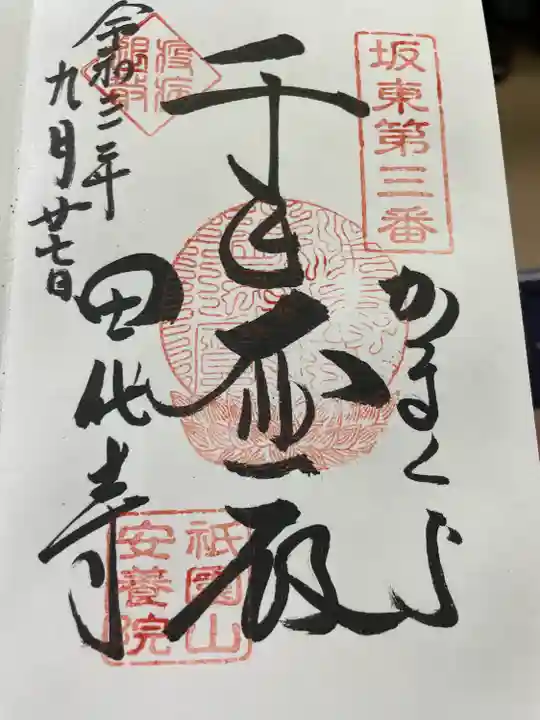 坂東第三番
かまくら
千手大悲殿
田代寺
令和三年
九月廿七日
祇園山
安養院